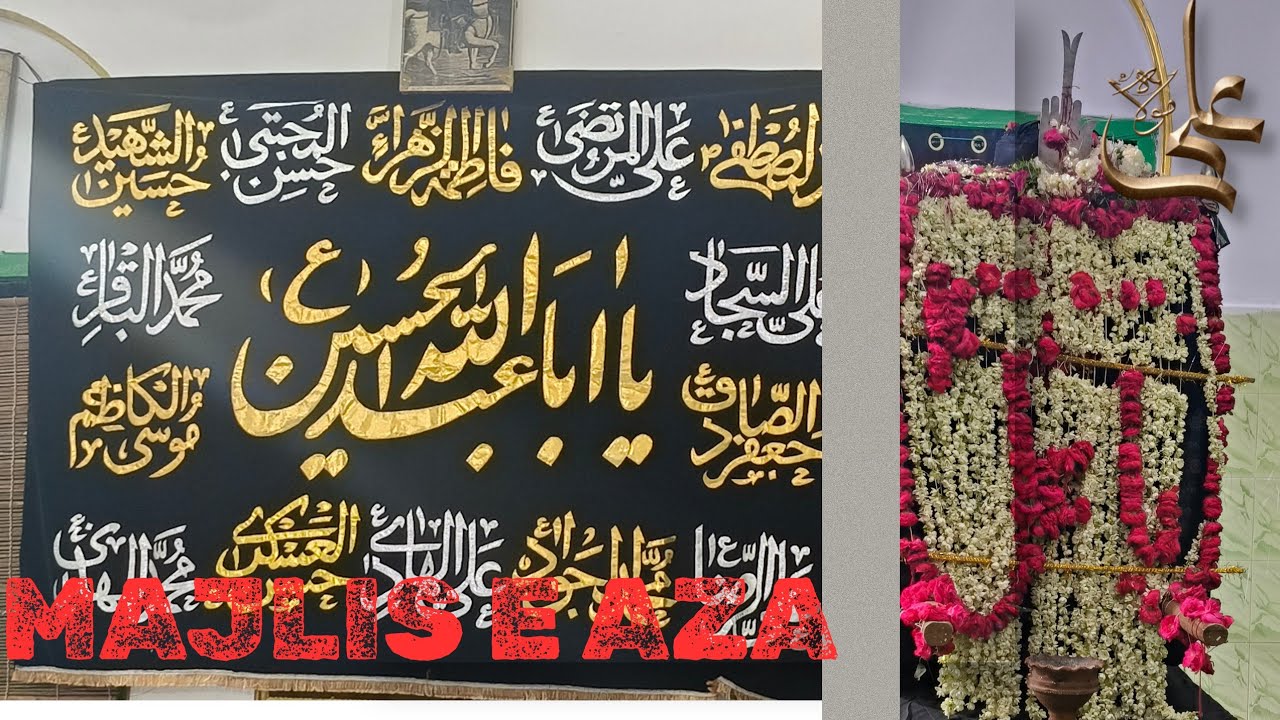 المصطفى
علی المرتضی ع
فاطمة الزهراء ع
حسن المجتبی ع
حسین الشهید ع
یا ابا عبد الله الحسین (ع)
علی السجاد ع
محمد الباقر ع
جعفر الصادق ع
موسی الکاظم ع
الرضا ع
محمد الجواد ع
علی الهادی ع
حسن العسکری ع
محمد المهدی ع
MAJLIS E AZA
علی